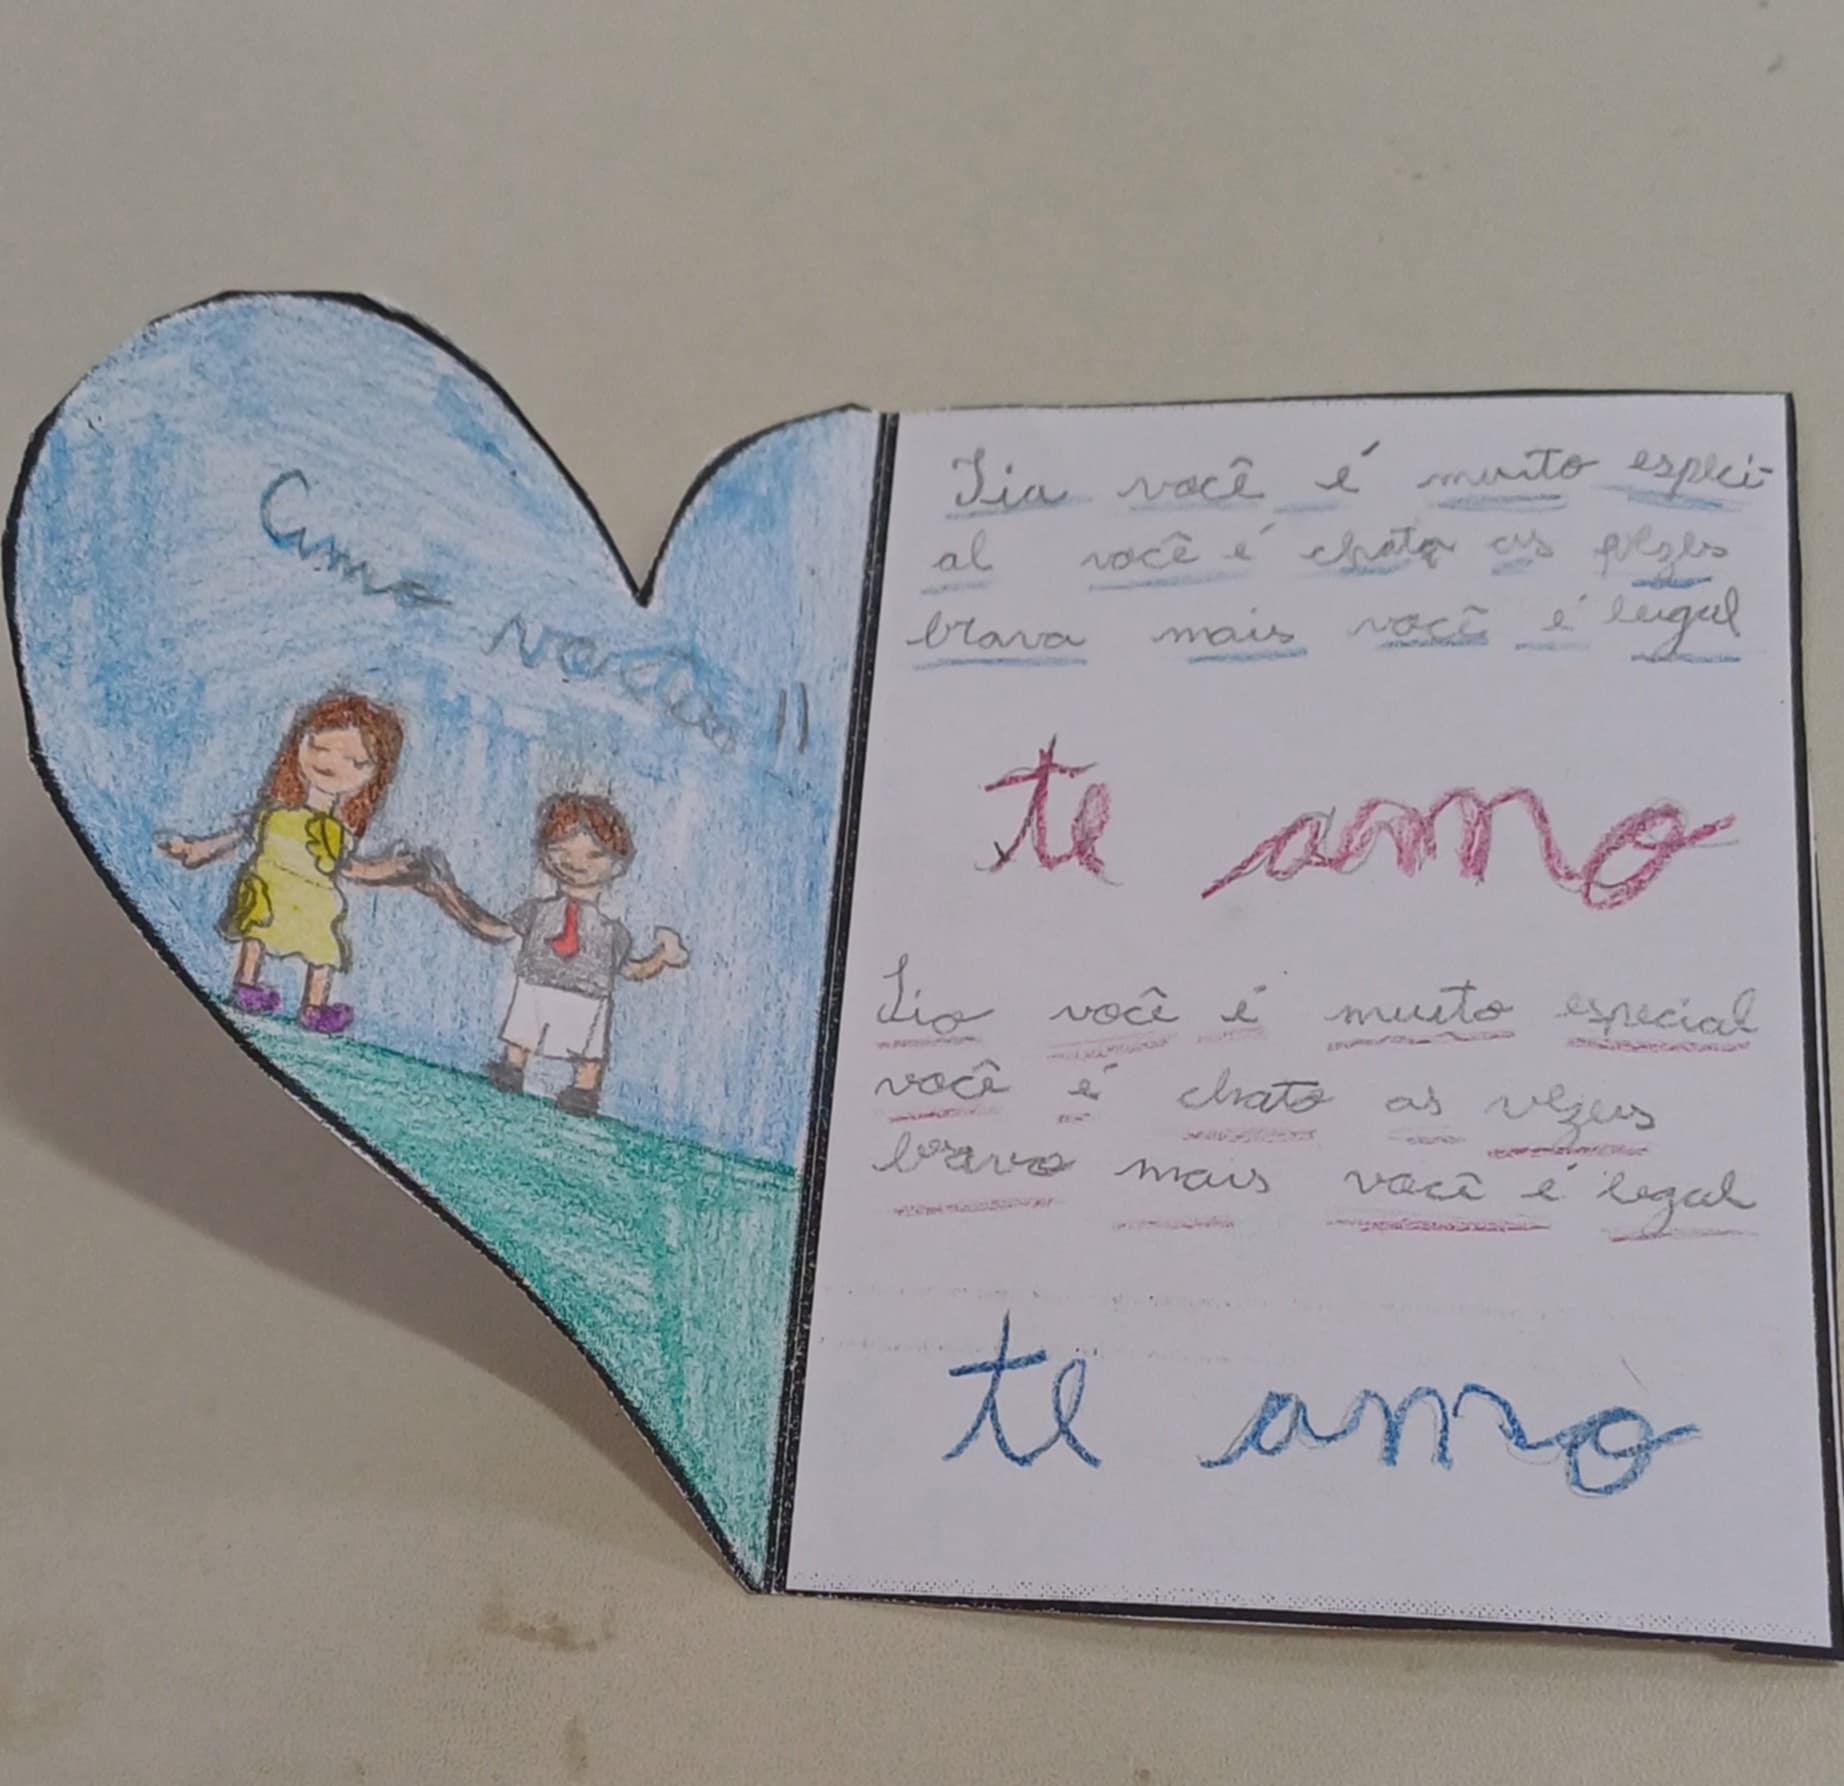 Amo vocês !!
Tia você é muito especi-
al você é chata as vezes
brava mais você é legal
te amo
Tio você é muito especial
você é chato as vezes
bravo mais você é legal
te amo